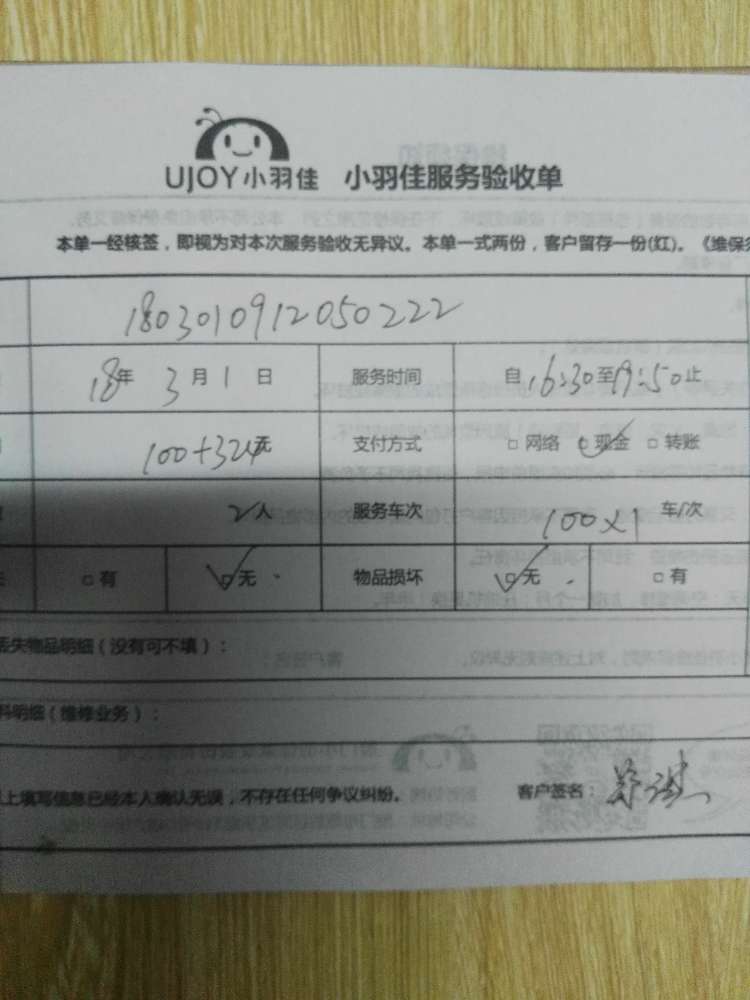 UJOY小羽佳 小羽佳服务验收单
本单一经核签，即视为对本次服务验收无异议。本单一式两份，客户留存一份(红)。《维保
180301091205022​2
18年 3月 1 日 服务时间 自 16:30至19:50止
100+324元 支付方式 □ 网络 □ 现金 □ 转账
2人 服务车次 100×1 车/次
□ 有 □ 无 物品损坏 □ 无 □ 有
丢失物品明细（没有可不填）：
料明细（维修业务）：
上填写信息已经本人确认无误，不存在任何争议纠纷。 客户签名：